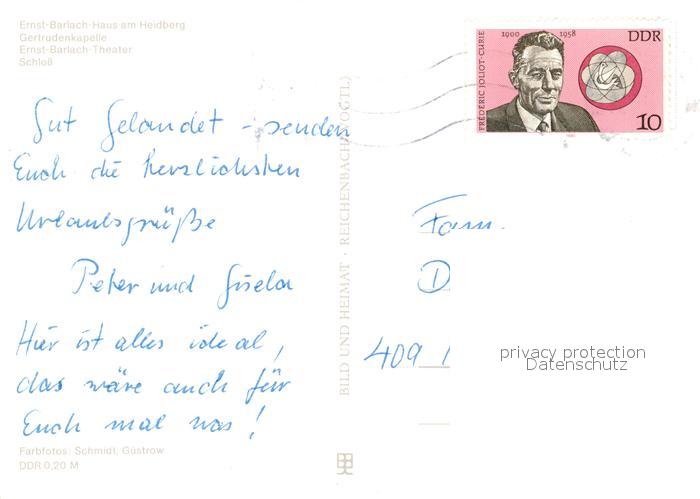 Ernst-Barlach-Haus am Heidberg
Gertrudenkapelle
Ernst-Barlach-Theater
Schloß
1900 1958
DDR
FRÉDÉRIC JOLIOT-CURIE
10
Gut gelandet - senden
Euch die herzlichsten
Urlaubsgrüße
Peter und Gisela
Hier ist alles ideal,
das wäre auch für
Euch mal was!
Farbfotos: Schmidt, Güstrow
DDR 0,20 M
BILD UND HEIMAT · REICHENBACH (VOGTL)
Fam.
D
409
privacy protection
Datenschutz